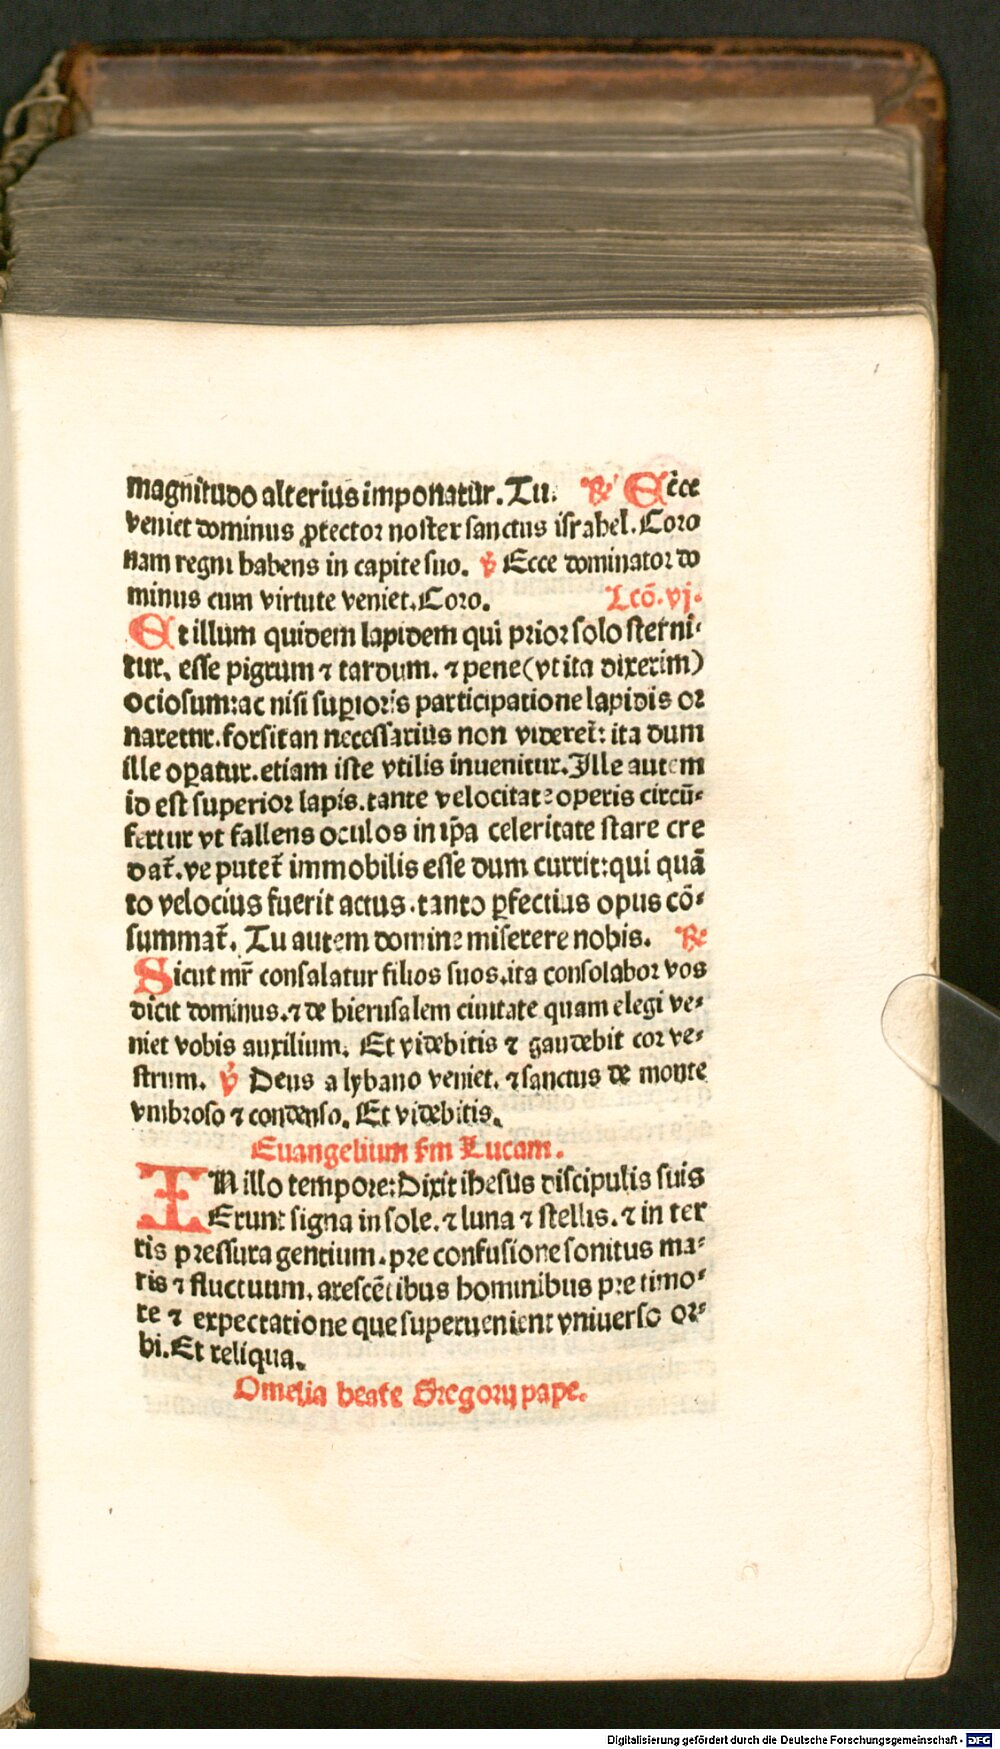 magnitudo alterius imponatur. Tu. ℟ Ecce
veniet dominus ꝓtector noster sanctus israhel. Coro
nam regni habens in capite suo. ℣ Ecce dominator do
minus cum virtute veniet. Coro. Lcõ. vj.
Et illum quidem lapidem qui prior solo sterni⸗
tur, esse pigrum ⁊ tardum. ⁊ pene (vt ita dixerim)
ociosum: ac nisi suꝑioris participatione lapidis or
naretur. forsitan necessarius non videret̃: ita dum
ille oꝑatur. etiam iste vtilis inuenitur. Ille autem
id est superior lapis. tante velocitate operis circũ⸗
fertur vt fallens oculos in ip̃a celeritate stare cre
dat̃. ve putet̃ immobilis esse dum currit: qui quã
to velocius fuerit actus. tanto ꝑfectius opus cõ⸗
summat̃. Tu autem domine miserere nobis. ℟
Sicut mr̃ consalatur filios suos. ita consolabor vos
dicit dominus. ⁊ de hierusalem ciuitate quam elegi ve⸗
niet vobis auxilium. Et videbitis ⁊ gaudebit cor ve⸗
strum. ℣ Deus a lybano veniet. ⁊ sanctus de monte
vmbroso ⁊ condenso. Et videbitis.
Euangelium s̃m Lucam.
IN illo tempore: Dixit ihesus discipulis suis
Erunt signa in sole. ⁊ luna ⁊ stellis. ⁊ in ter
ris pressura gentium. pre confusione sonitus ma⸗
ris ⁊ fluctuum, arescẽtibus hominibus pre timo⸗
re ⁊ expectatione que superuenient vniuerso or⸗
bi. Et reliqua.
Omelia beate Gregorij pape.
Digitalisierung gefördert durch die Deutsche Forschungsgemeinschaft - DFG